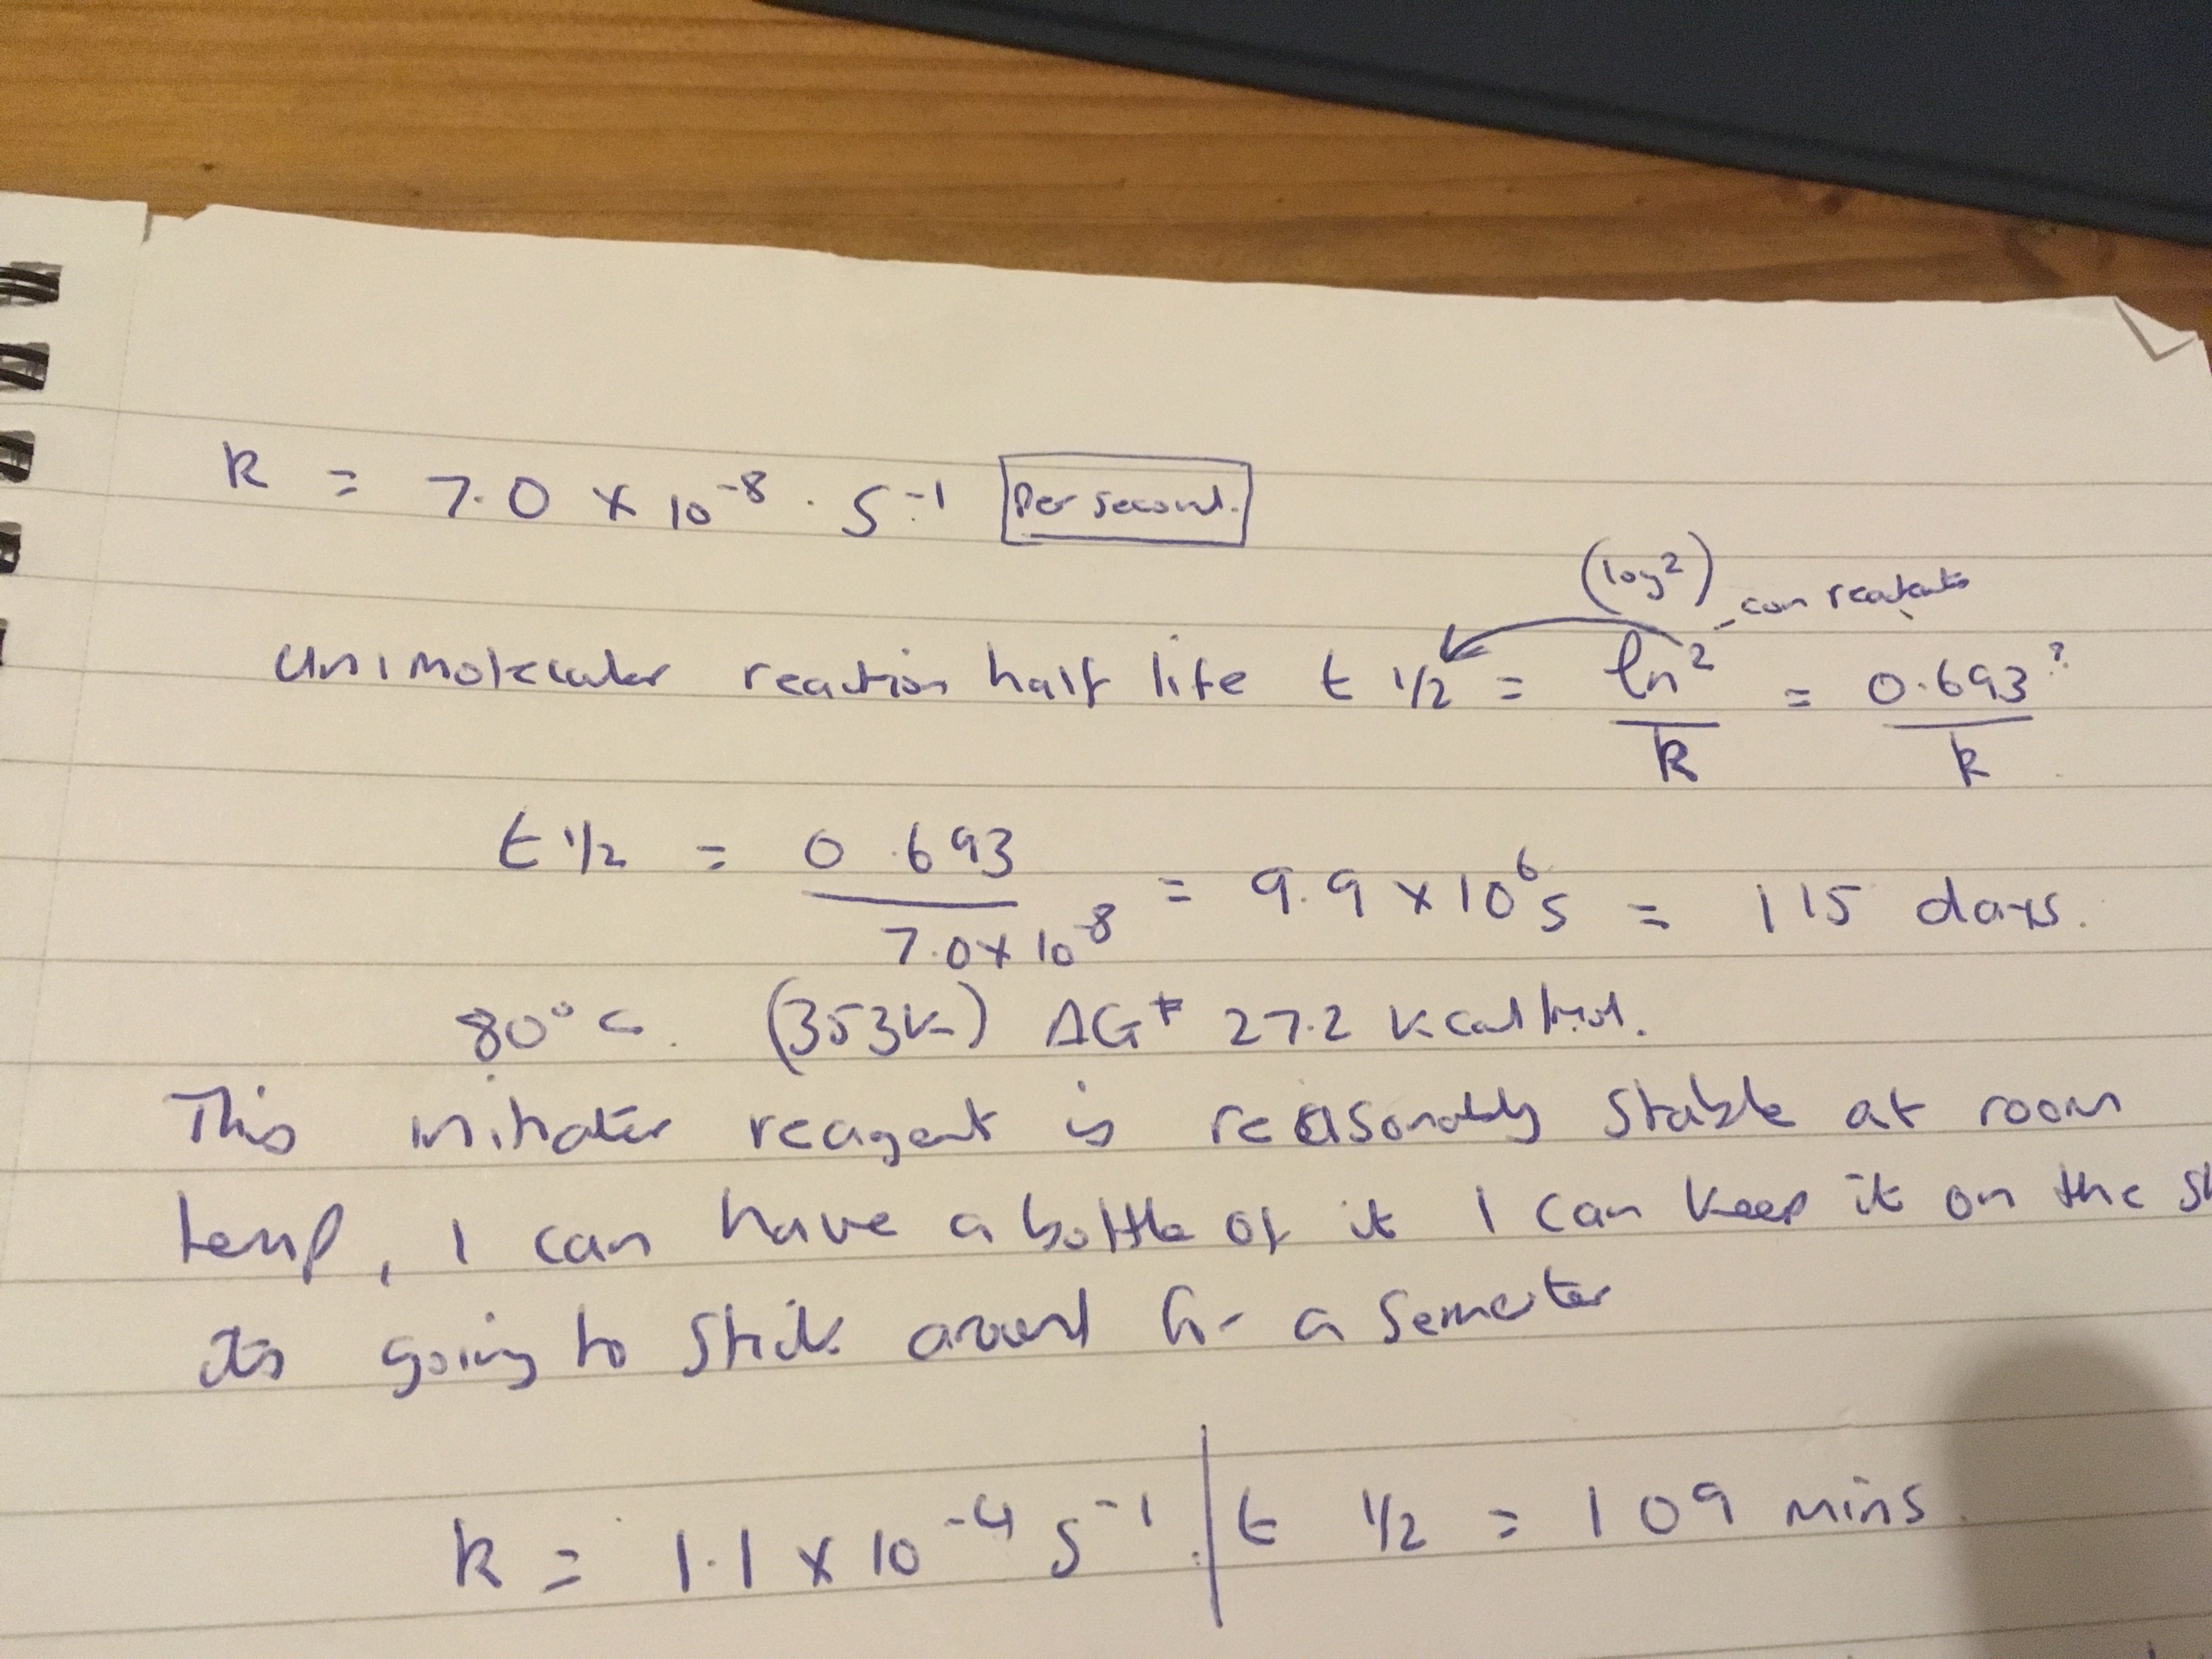 k = 7.0 × 10⁻⁸ · s⁻¹ Per second.
(log²)
con reactants
unimolecular reaction half life t 1/2 = ln²/k = 0.693?/k
t 1/2 = 0.693/7.0×10⁻⁸ = 9.9 × 10⁶ s = 115 days.
80°C. (353K) ΔG‡ 27.2 kcal/mol.
This initiator reagent is reasonably stable at room
temp, I can have a bottle of it I can keep it on the sh
its going to stick around for a semester
k = 1.1 × 10⁻⁴ s⁻¹. | t 1/2 = 109 mins.